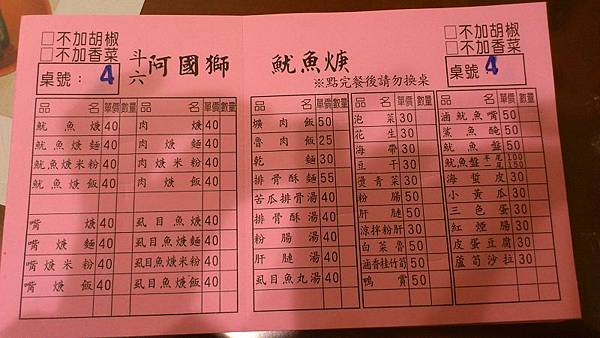 □不加胡椒
□不加香菜
桌號：4
斗六 阿國獅 魷魚焿
※點完餐後請勿換桌
□不加胡椒
□不加香菜
桌號：4
品名 單價 數量 品名 單價 數量
魷魚焿 40 肉焿 40
魷魚焿麵 40 肉焿麵 40
魷魚焿米粉 40 肉焿米粉 40
魷魚焿飯 40 肉焿飯 40
嘴焿 40 虱目魚焿 40
嘴焿麵 40 虱目魚焿麵 40
嘴焿米粉 40 虱目魚焿米粉 40
嘴焿飯 40 虱目魚焿飯 40
品名 單價 數量
爌肉飯 50
魯肉飯 25
乾麵 30
排骨酥麵 55
苦瓜排骨湯 40
排骨酥湯 40
粉腸湯 40
肝腱湯 40
虱目魚丸湯 40
品名 單價 數量
泡菜 30
花生 30
海帶 30
豆干 30
燙青菜 30
粉腸 50
肝腱 50
涼拌粉肝 30
白菜魯 50
滷香桂竹筍 50
鴨賞 50
品名 單價 數量
滷魷魚嘴 50
鯊魚醃 50
魷魚盤 50
魷魚盤 半尾 100 一尾 150
海蜇皮 30
小黃瓜 30
三色蛋 30
紅煙腸 30
皮蛋豆腐 30
蘆筍沙拉 30